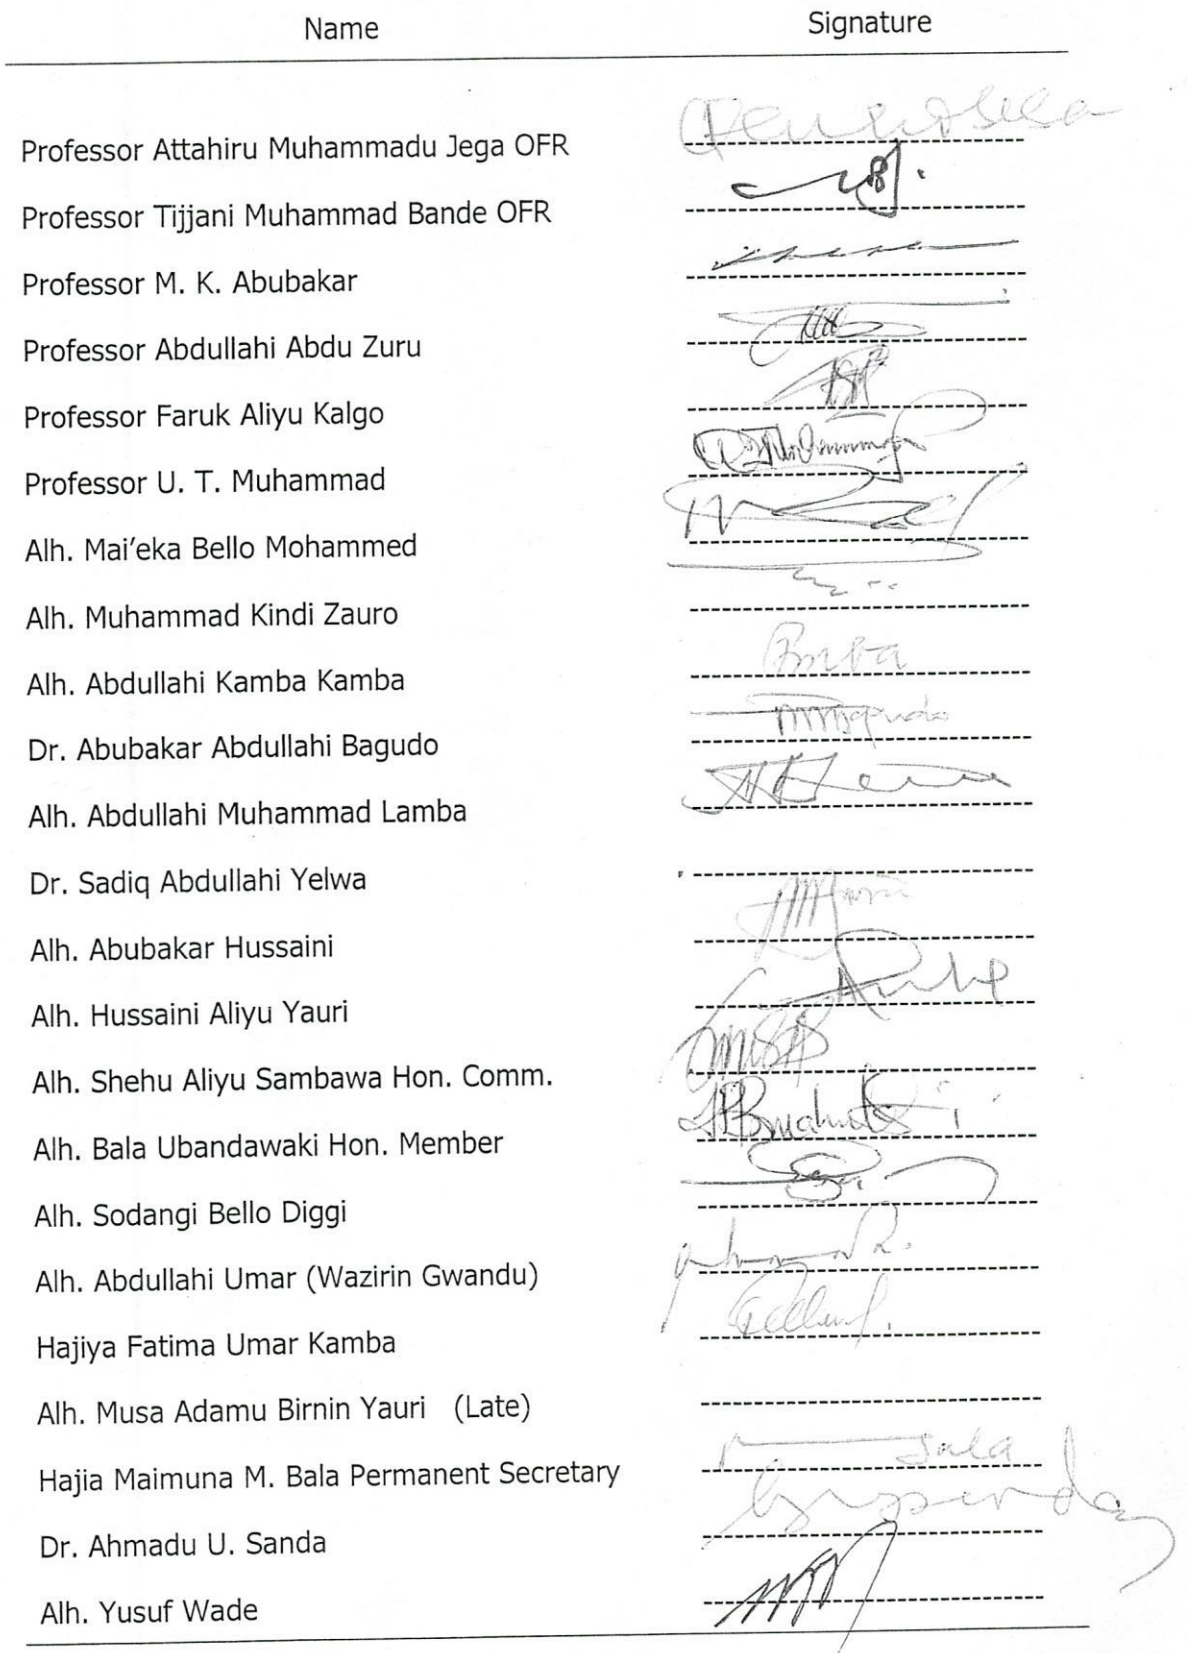 Name Signature
Professor Attahiru Muhammadu Jega OFR
Professor Tijjani Muhammad Bande OFR
Professor M. K. Abubakar
Professor Abdullahi Abdu Zuru
Professor Faruk Aliyu Kalgo
Professor U. T. Muhammad
Alh. Mai'eka Bello Mohammed
Alh. Muhammad Kindi Zauro
Alh. Abdullahi Kamba Kamba
Dr. Abubakar Abdullahi Bagudo
Alh. Abdullahi Muhammad Lamba
Dr. Sadiq Abdullahi Yelwa
Alh. Abubakar Hussaini
Alh. Hussaini Aliyu Yauri
Alh. Shehu Aliyu Sambawa Hon. Comm.
Alh. Bala Ubandawaki Hon. Member
Alh. Sodangi Bello Diggi
Alh. Abdullahi Umar (Wazirin Gwandu)
Hajiya Fatima Umar Kamba
Alh. Musa Adamu Birnin Yauri (Late)
Hajia Maimuna M. Bala Permanent Secretary
Dr. Ahmadu U. Sanda
Alh. Yusuf Wade